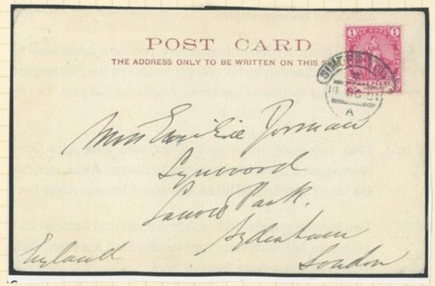 POST CARD
THE ADDRESS ONLY TO BE WRITTEN ON THIS
1 1
A
Miss Emilie Dorman
Lynwood
Lawrie Park.
Sydenham
London
England